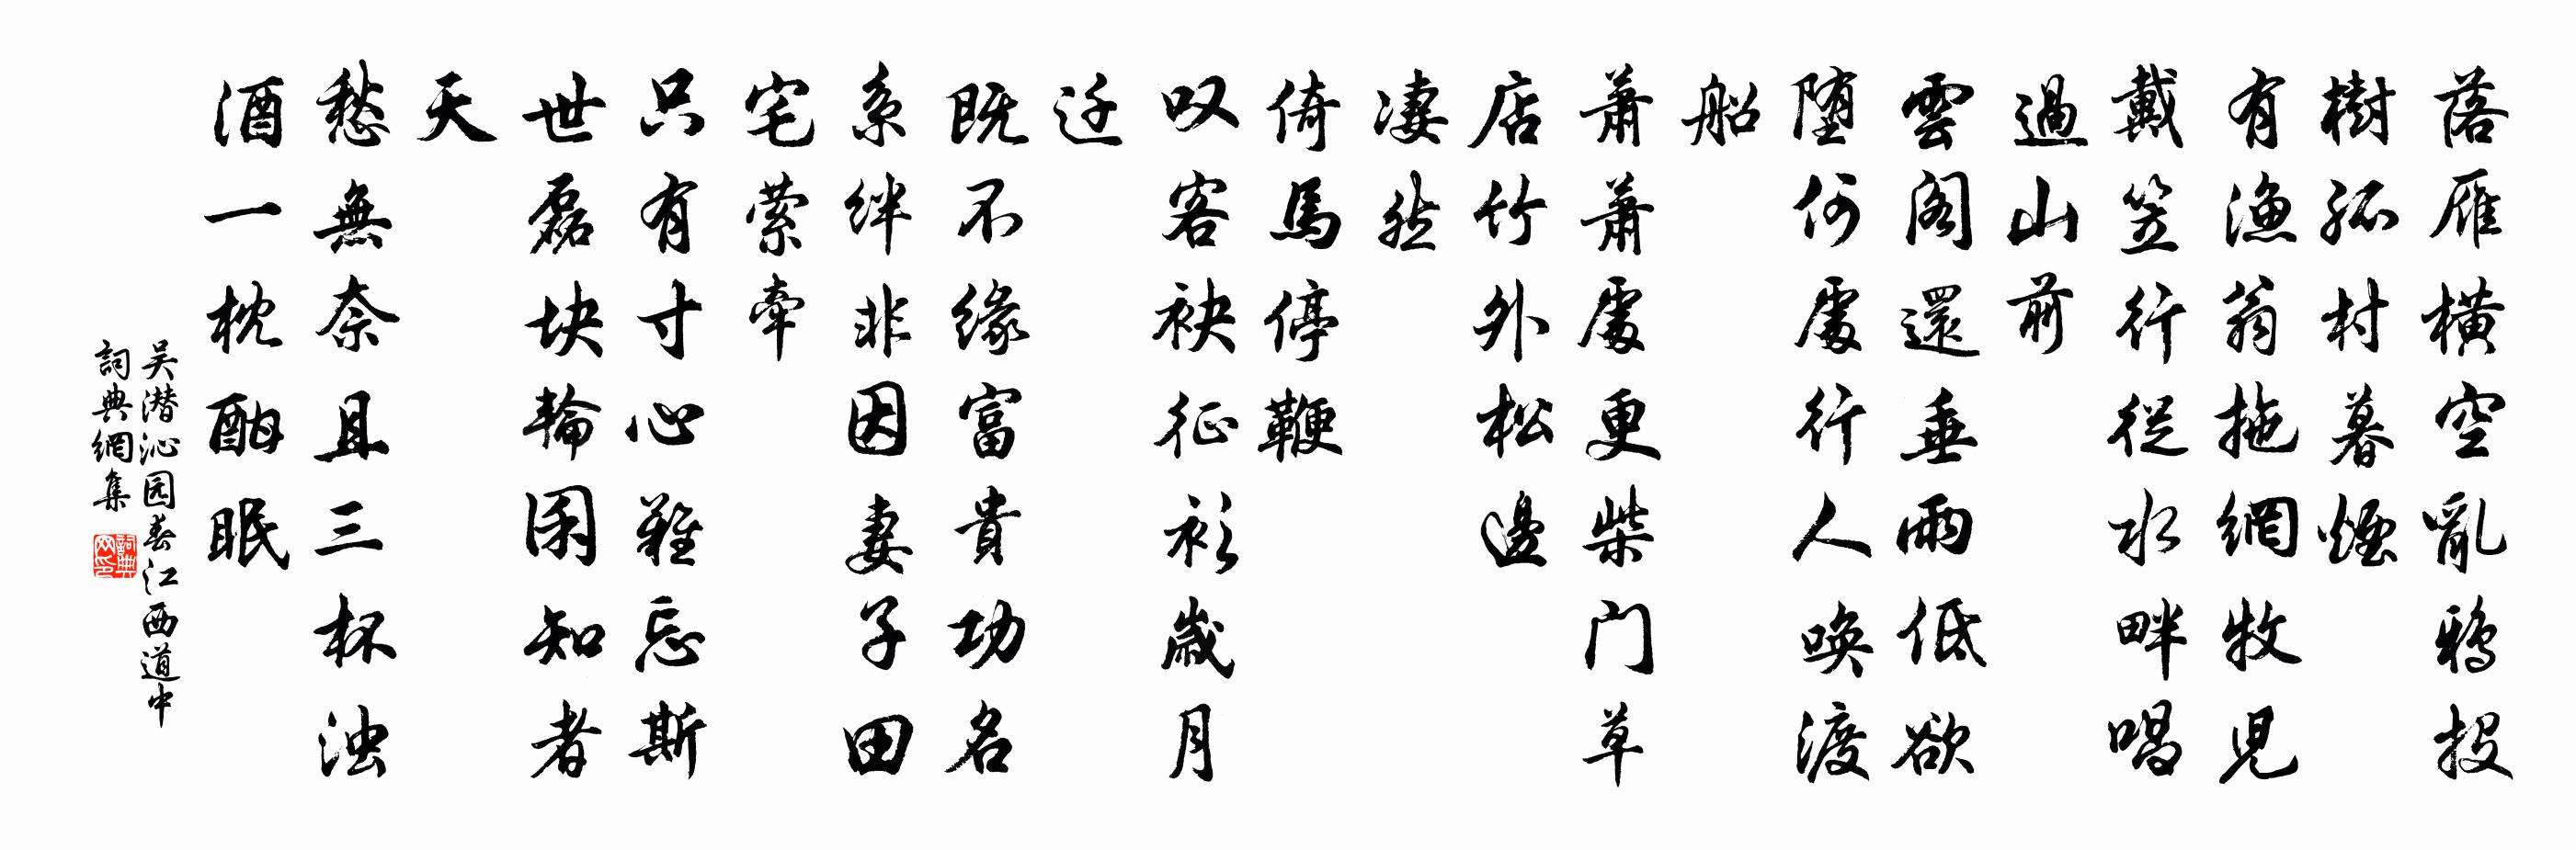 落雁橫空亂鴉投
樹孤村暮煙
有漁翁拖網牧兒
戴笠行從水畔唱
過山前
雲閣還垂雨低欲
墮何處行人喚渡
船
蕭蕭處更柴门草
店竹外松邊
凄然
倚馬停鞭
叹客袂征衫歲月
迁
既不缘富貴功名
系絆非因妻子田
宅縈牽
只有寸心難忘斯
世磊块輪囷知者
天
愁無奈且三杯浊
酒一枕酣眠
吴潜沁园春江西道中
詞典網集